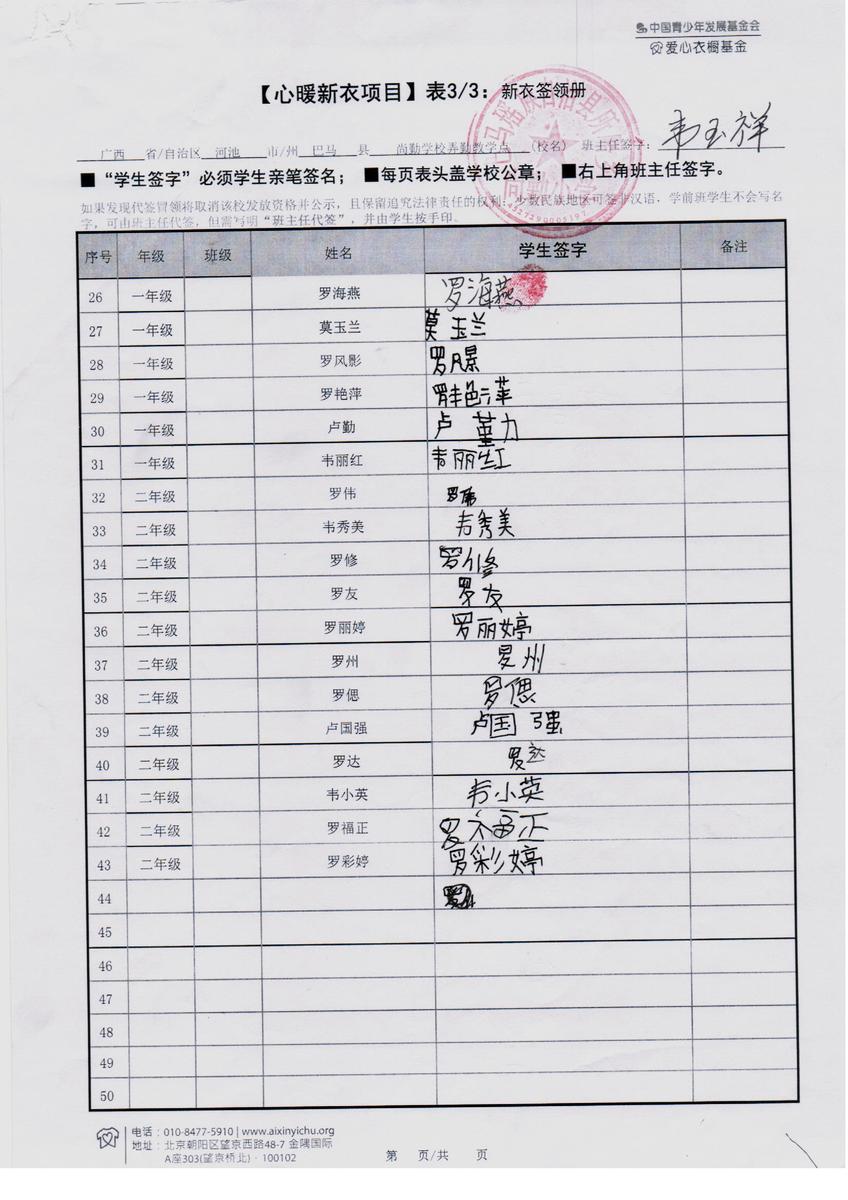 中国青少年发展基金会
爱心衣橱基金
【心暖新衣项目】表3/3：新衣签领册
广西 省/自治区 河池 市/州 巴马 县 尚勤学校弄勤教学点 (校名) 班主任签字：韦玉祥
■“学生签字”必须学生亲笔签名； ■每页表头盖学校公章； ■右上角班主任签字。
如果发现代签冒领将取消该校发放资格并公示，且保留追究法律责任的权利；少数民族地区可签非汉语，学前班学生不会写名
字，可由班主任代签，但需写明“班主任代签”，并由学生按手印。
序号 年级 班级 姓名 学生签字 备注
26 一年级 罗海燕 罗海燕
27 一年级 莫玉兰 莫玉兰
28 一年级 罗风影 罗风景
29 一年级 罗艳萍 罗艳萍
30 一年级 卢勤 卢勤
31 一年级 韦丽红 韦丽红
32 二年级 罗伟 罗伟
33 二年级 韦秀美 韦秀美
34 二年级 罗修 罗修
35 二年级 罗友 罗友
36 二年级 罗丽婷 罗丽婷
37 二年级 罗州 罗州
38 二年级 罗偲 罗偲
39 二年级 卢国强 卢国强
40 二年级 罗达 罗达
41 二年级 韦小英 韦小英
42 二年级 罗福正 罗福正
43 二年级 罗彩婷 罗彩婷
44
45
46
47
48
49
50
电话：010-8477-5910 | www.aixinyichu.org
地址：北京朝阳区望京西路48-7 金隅国际
A座303(望京桥北)·100102
第 页/共 页